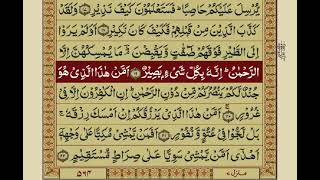 يُرْسِلَ عَلَيْكُمْ حَاصِبًا ؕ فَسَتَعْلَمُوْنَ كَيْفَ نَذِيْرِ ﴿۱۷﴾ وَلَقَدْ
كَذَّبَ الَّذِيْنَ مِنْ قَبْلِهِمْ فَكَيْفَ كَانَ نَكِيْرِ ﴿۱۸﴾ اَوَلَمْ يَرَوْا
اِلَى الطَّيْرِ فَوْقَهُمْ صٰٓفّٰتٍ وَّيَقْبِضْنَ ؕ مَا يُمْسِكُهُنَّ اِلَّا
الرَّحْمٰنُ ؕ اِنَّهٗ بِكُلِّ شَيْءٍۭ بَصِيْرٌ ﴿۱۹﴾ اَمَّنْ هٰذَا الَّذِيْ هُوَ
جُنْدٌ لَّكُمْ يَنْصُرُكُمْ مِّنْ دُوْنِ الرَّحْمٰنِ ؕ اِنِ الْكٰفِرُوْنَ اِلَّا فِيْ
غُرُوْرٍ ﴿۲۰﴾ اَمَّنْ هٰذَا الَّذِيْ يَرْزُقُكُمْ اِنْ اَمْسَكَ رِزْقَهٗ ۚ
بَلْ لَّجُّوْا فِيْ عُتُوٍّ وَّنُفُوْرٍ ﴿۲۱﴾ اَفَمَنْ يَّمْشِيْ مُكِبًّا عَلٰى وَجْهِهٖٓ
اَهْدٰٓى اَمَّنْ يَّمْشِيْ سَوِيًّا عَلٰى صِرَاطٍ مُّسْتَقِيْمٍ ﴿۲۲﴾
منزل ۷
۵۶۴